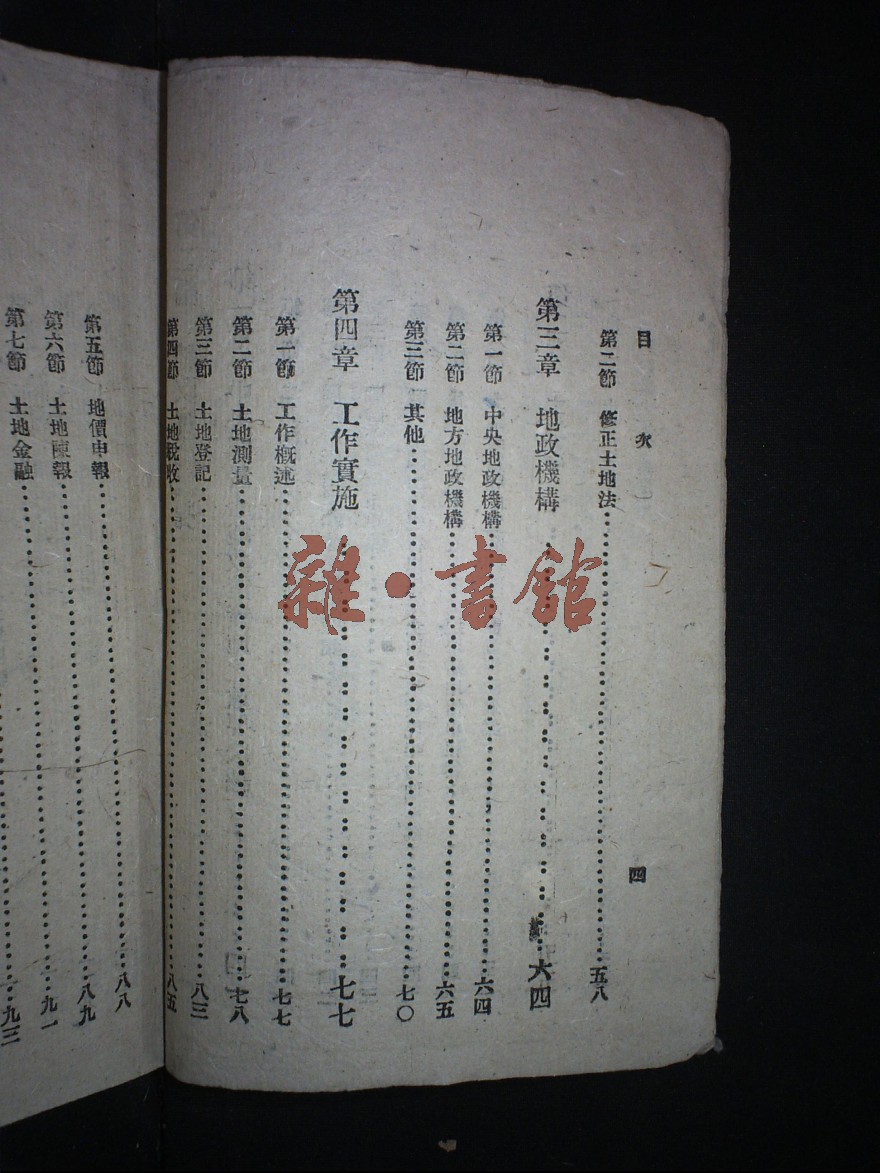 目 次 四
第二節 修正土地法……五八
第三章 地政機構……六四
第一節 中央地政機構……六四
第二節 地方地政機構……六五
第三節 其他……七〇
第四章 工作實施……七七
第一節 工作概述……七七
第二節 土地測量……七八
第三節 土地登記……八三
第四節 土地稅收……八五
第五節 地價申報……八八
第六節 土地陳報……八九
第七節 土地金融……九一
……九三
雜·書館